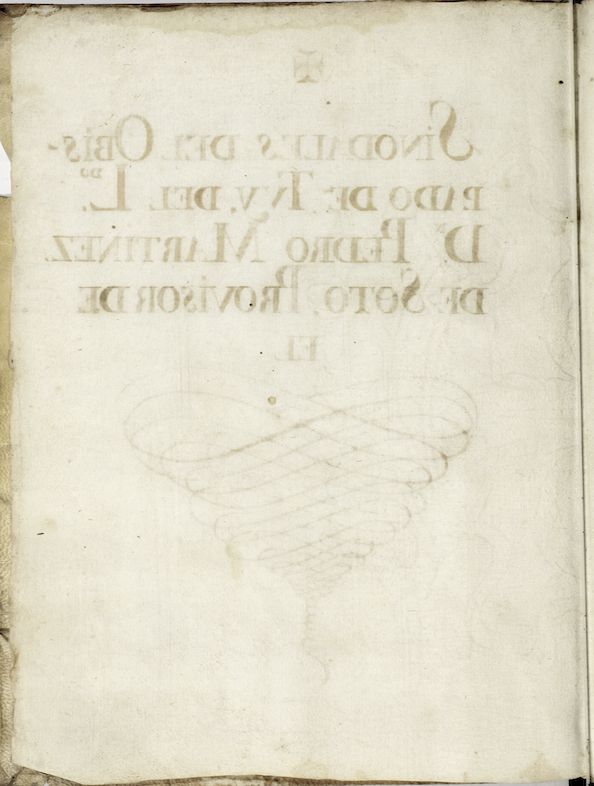 ✠
SINODALES DEL OBIS-
PADO DE TVY. DEL L.^DO
D.^N PEDRO MARTINEZ
DE SOTO, PROVISOR DE
EL